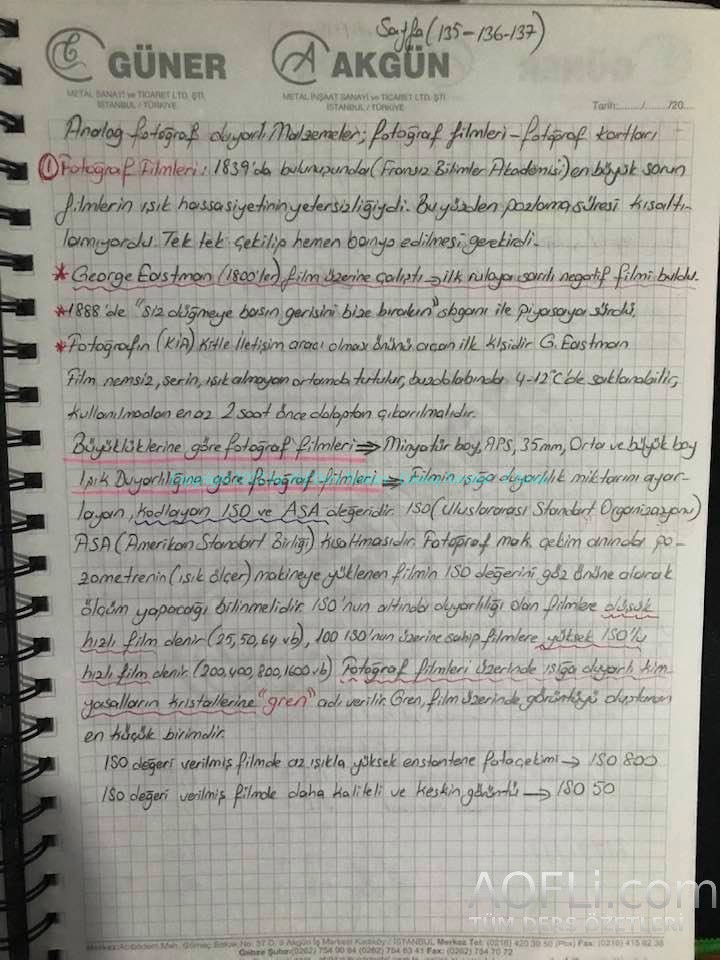 Sayfa (135-136-137)
GÜNER
AKGÜN
METAL SANAYİ ve TİCARET LTD. ŞTİ.
İSTANBUL / TÜRKİYE
METAL İNŞAAT SANAYİ ve TİCARET LTD. ŞTİ.
İSTANBUL / TÜRKİYE
Tarih:....../....../20....
Analog fotoğraf duyarlı Malzemeler; fotoğraf filmleri - fotoğraf kartları
① Fotoğraf Filmleri: 1839'da bulunuşunda (Fransız Bilimler Akademisi) en büyük sorun
filmlerin ışık hassasiyetinin yetersizliğiydi. Bu yüzden pozlama süresi kısaltı-
lamıyordu. Tek tek çekilip hemen banyo edilmesi gerekirdi.
* George Eastman (1800'ler) film üzerine çalıştı → ilk rulaya sarılı negatif filmi buldu.
* 1888'de "siz düğmeye basın gerisini bize bırakın" sloganı ile piyasaya sürdü.
* Fotoğrafın (KİA) Kitle İletişim aracı olmax önünü açan ilk kişidir G. Eastman
Film nemsiz, serin, ışık almayan ortamda tutulur, buzdolabında 4-12°C'de saklanabilir,
kullanılmadan en az 2 saat önce dolaptan çıkarılmalıdır.
Büyüklüklerine göre fotoğraf filmleri ⇒ Minyatür boy, APS, 35mm, Orta ve büyük boy
Işık Duyarlılığına göre fotoğraf filmleri ⇒ Filmin ışığa duyarlılık miktarını ayar-
layan, kodlayan ISO ve ASA değeridir. ISO (Uluslararası Standart Organizasyonu)
ASA (Amerikan Standart Birliği) kısaltmasıdır. Fotoğraf mak. çekim anında po-
zometrenin (ışık ölçer) makineye yüklenen filmin ISO değerini göz önüne alarak
ölçüm yapacağı bilinmelidir. ISO'nun altında duyarlılığı olan filmlere düşük
hızlı film denir (25, 50, 64 vb), 100 ISO'nun üzerine sahip filmlere yüksek ISO'lu
hızlı film denir. (200, 400, 800, 1600 vb) Fotoğraf filmleri üzerinde ışığa duyarlı kim
yasalların kristallerine "gren" adı verilir. Gren, film üzerinde görüntüyü oluşturan
en küçük birimdir.
ISO değeri verilmiş filmde az ışıkla yüksek enstantene foto çekimi → ISO 800
ISO değeri verilmiş filmde daha kaliteli ve keskin görüntü → ISO 50
AOFLi.com
TÜM DERS ÖZETLERİ
Merkez: Acıbadem Mah. Gömeç Sokak No: 37 D. 9 Akgün İş Merkezi Kadıköy / İSTANBUL Merkez Tel: (0216) 420 30 50 (Pbx) Fax: (0216) 415 62 38
Gebze Şube: (0262) 754 90 84 (0262) 754 63 41 Fax: (0262) 754 70 72